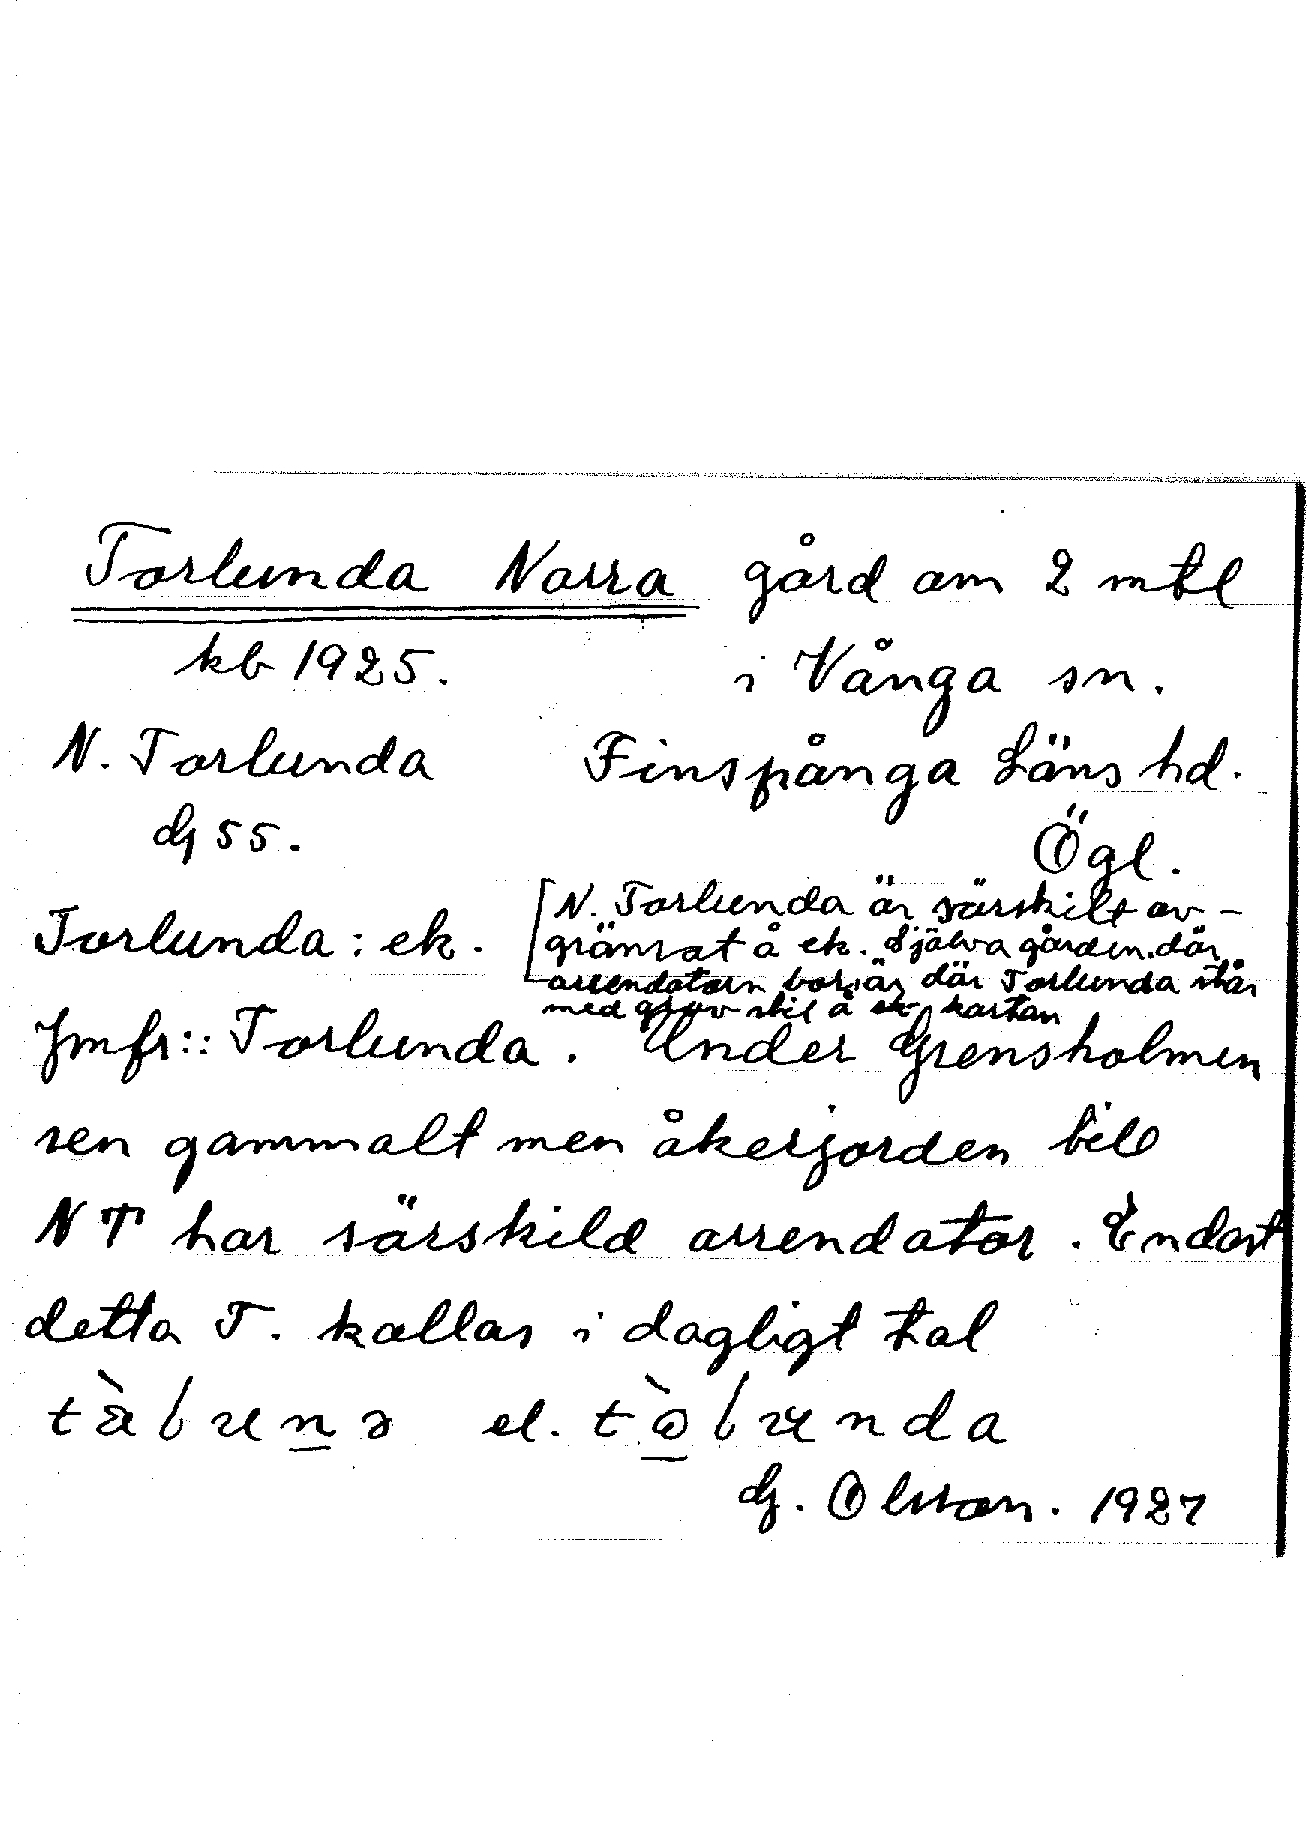 Torlunda Norra gård om 2 mtl
kb 1925. i Vånga sn.
N. Torlunda Finspånga Läns hd.
dj 55. Ögl.
[N. Torlunda är särskilt av-
Torlunda: ek. gränsat å ek. Själva gården, där
arrendatorn bor, är där Torlunda står
med grov stil å ek kartan
Jmfr:: Torlunda. Under Grensholmen
sen gammalt men åkerjorden till
NT har särskild arrendator. Endast
detta T. kallas i dagligt tal
el.
G. Olsson. 1927